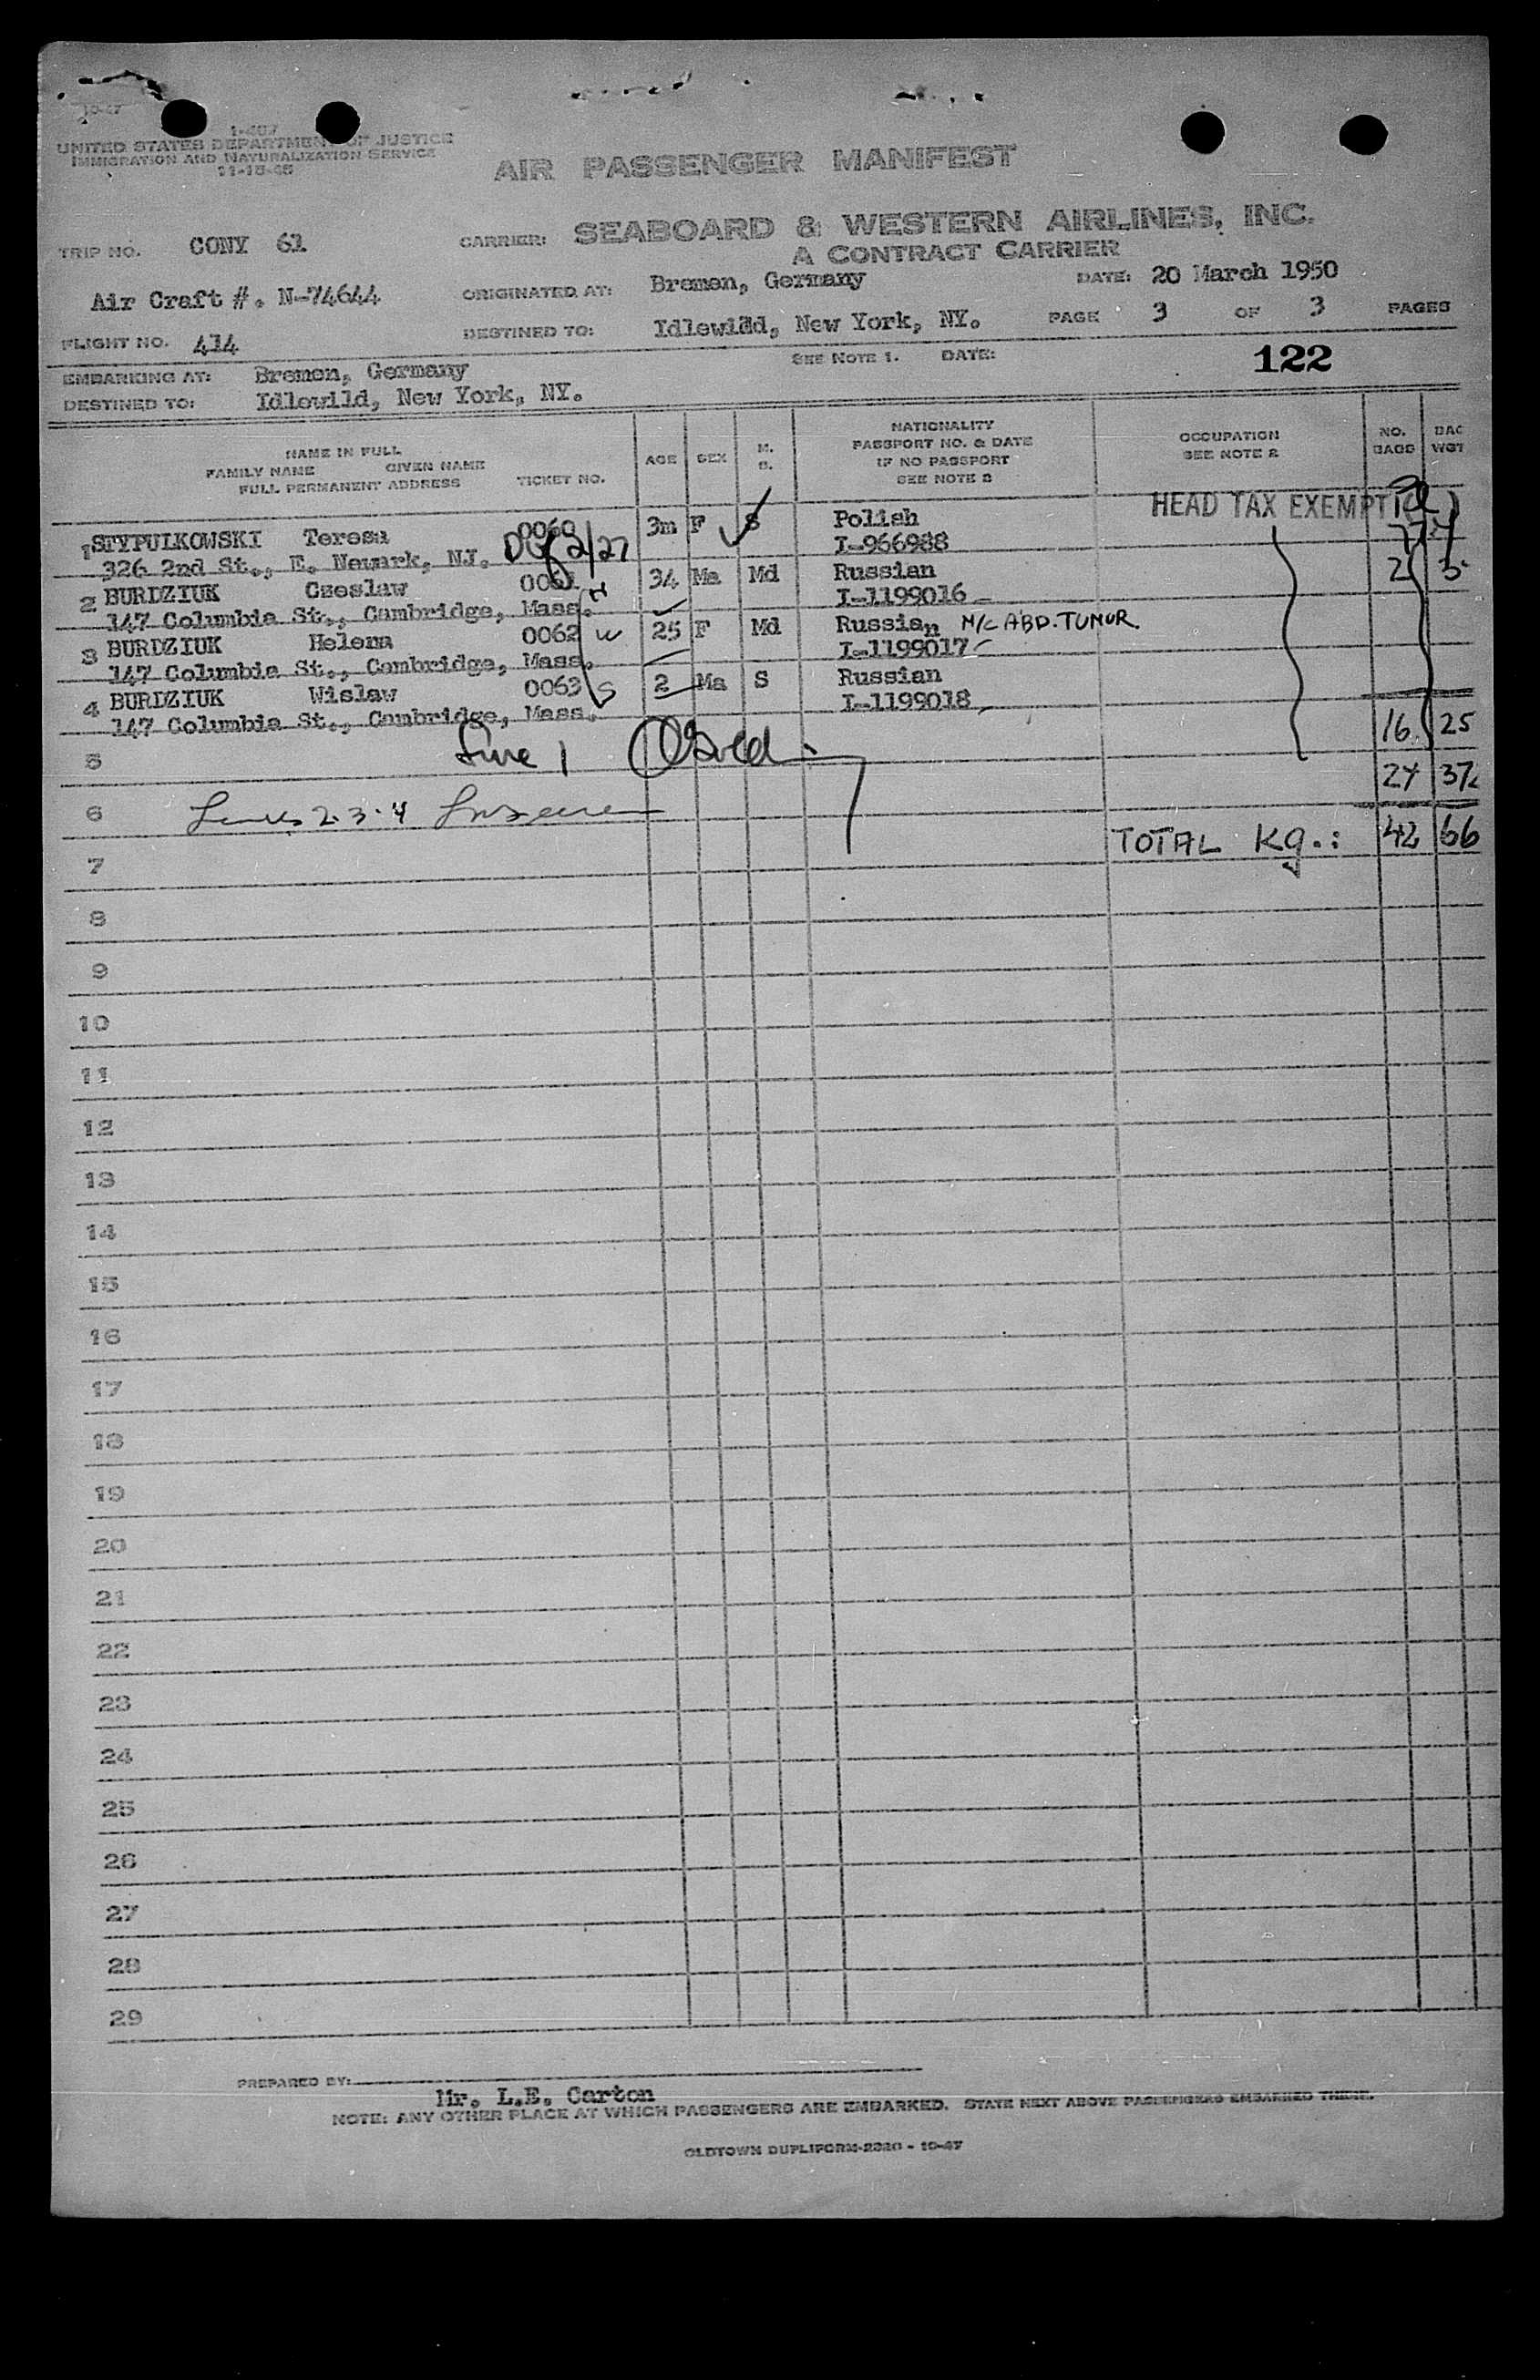 10-47
1-407
UNITED STATES DEPARTMENT OF JUSTICE
IMMIGRATION AND NATURALIZATION SERVICE
11-15-45
AIR PASSENGER MANIFEST
TRIP NO. CONY 61 CARRIER: SEABOARD & WESTERN AIRLINES, INC.
A CONTRACT CARRIER
Air Craft #. N-74644 ORIGINATED AT: Bremen, Germany DATE: 20 March 1950
FLIGHT NO. 414 DESTINED TO: Idlewild, New York, NY. PAGE 3 OF 3 PAGES
EMBARKING AT: Bremen, Germany SEE NOTE 1. DATE: 122
DESTINED TO: Idlewild, New York, NY.
NAME IN FULL
FAMILY NAME GIVEN NAME
FULL PERMANENT ADDRESS TICKET NO. AGE SEX M. S. NATIONALITY
PASSPORT NO. & DATE
IF NO PASSPORT
SEE NOTE 2 OCCUPATION
SEE NOTE 2 NO.
BAGS BAG
WGT
HEAD TAX EXEMPT
1 STYPULKOWSKI Teresa 0060 3m F S Polish
326 2nd St., E. Newark, NJ. I-966988
2 BURDZIUK Czeslaw 0061 34 Ma Md Russian 2
147 Columbia St., Cambridge, Mass. I-1199016
3 BURDZIUK Helena 0062 W 25 F Md Russian M/C ABD. TUMOR
147 Columbia St., Cambridge, Mass. I-1199017
4 BURDZIUK Wislaw 0063 S 2 Ma S Russian
147 Columbia St., Cambridge, Mass. I-1199018
16 25
5 Line 1
24 37
6 2-3-4
TOTAL Kg.: 42 66
7
8
9
10
11
12
13
14
15
16
17
18
19
20
21
22
23
24
25
26
27
28
29
PREPARED BY:
Mr. L.E. Carton
NOTE: ANY OTHER PLACE AT WHICH PASSENGERS ARE EMBARKED. STATE NEXT ABOVE PASSENGERS EMBARKED THERE.
OLDTOWN DUPLIFORM-2320 - 10-47